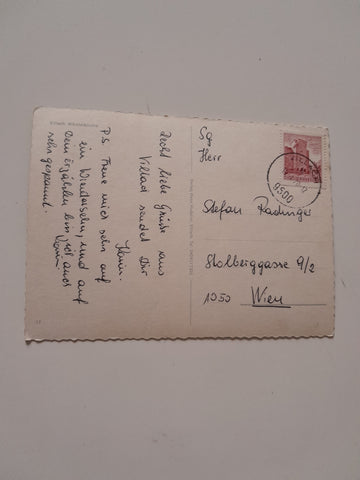 Recht liebe Grüße aus
Villach sendet Dir
Karin.
P.S. Freue mich sehr auf
ein Wiedersehn, und auf
Dein Erzählen bin
sehr gespannt.
Karin
Sg.
Herr
Stefan Radinger
Stolberggasse 9/2
1050 Wien
9500